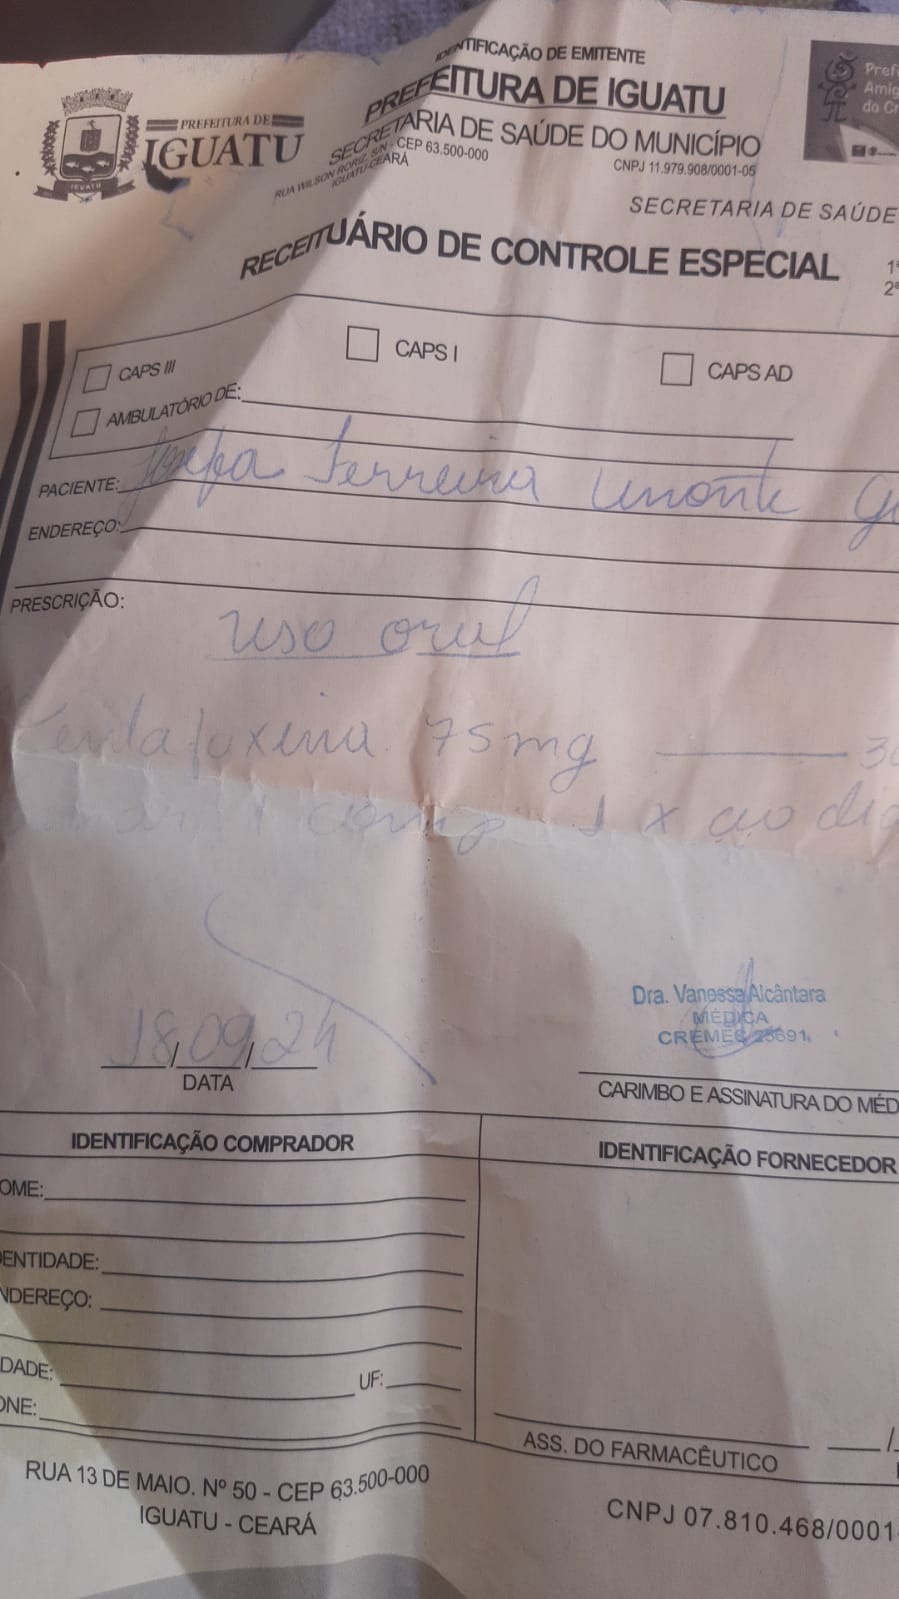 IDENTIFICAÇÃO DE EMITENTE
PREFEITURA DE IGUATU
SECRETARIA DE SAÚDE DO MUNICÍPIO
RUA WILSON RORIZ, S/N - CEP 63.500-000
IGUATU-CEARÁ
CNPJ 11.979.908/0001-05
PREFEITURA DE
IGUATU
Pref
Amig
do Cr
SECRETARIA DE SAÚDE
RECEITUÁRIO DE CONTROLE ESPECIAL
1ª
2ª
CAPS III
CAPS I
CAPS AD
AMBULATÓRIO DE:
PACIENTE: Josefa Ferreira
ENDEREÇO:
PRESCRIÇÃO:
uso oral
75mg 30
1 comp 1 x ao dia
18/09/24
DATA
Dra. Vanessa Alcântara
MÉDICA
CREMEC 25691
CARIMBO E ASSINATURA DO MÉD
IDENTIFICAÇÃO COMPRADOR
OME:
DENTIDADE:
NDEREÇO:
DADE: UF:
ONE:
IDENTIFICAÇÃO FORNECEDOR
ASS. DO FARMACÊUTICO
RUA 13 DE MAIO. Nº 50 - CEP 63.500-000
IGUATU - CEARÁ
CNPJ 07.810.468/0001-